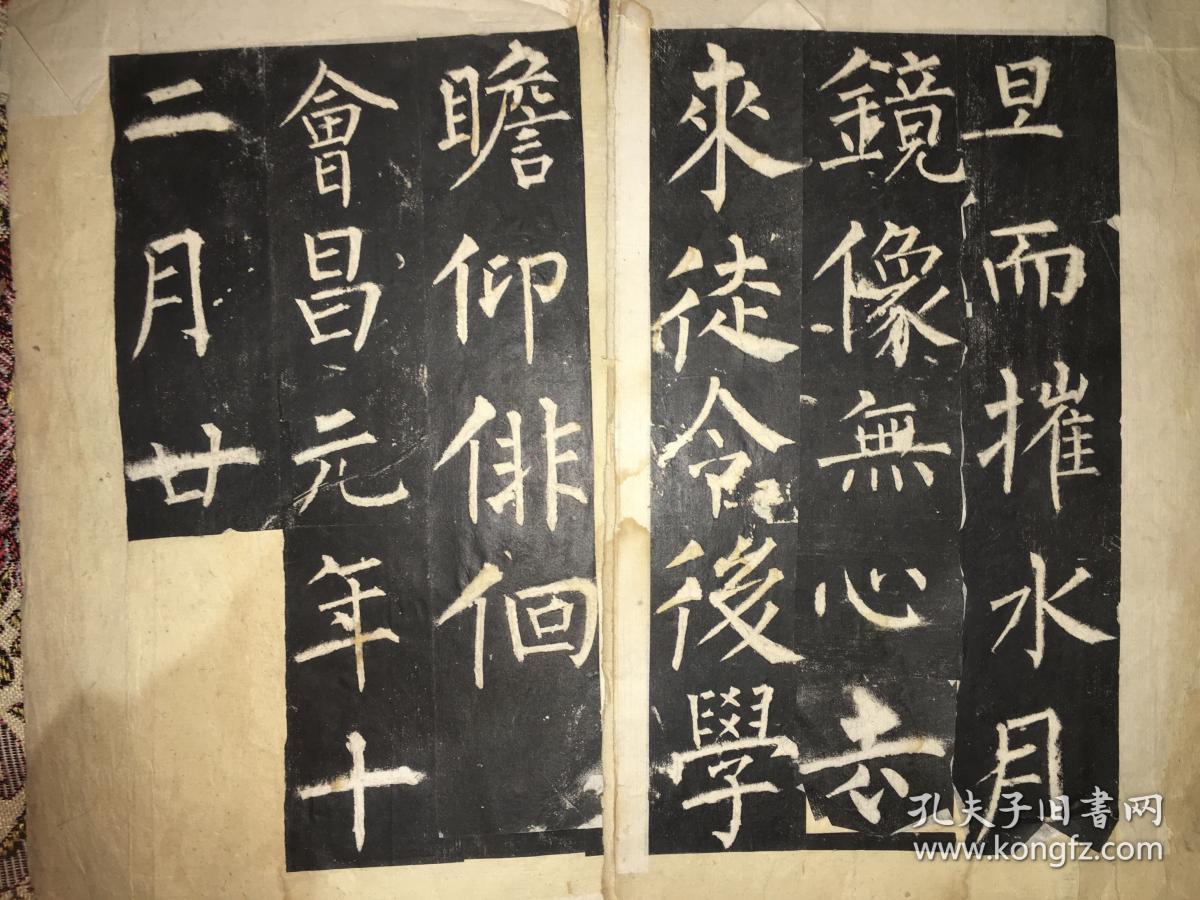 旦而摧水月
鏡像無心去
來徒令後學
瞻仰徘徊
會昌元年十
二月廿
孔夫子旧書网
www.kongfz.com